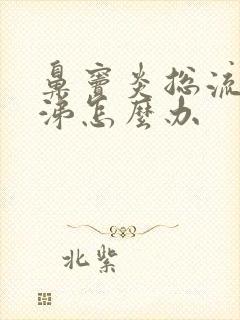 鼻窦炎总流
涕怎麽办
北紫